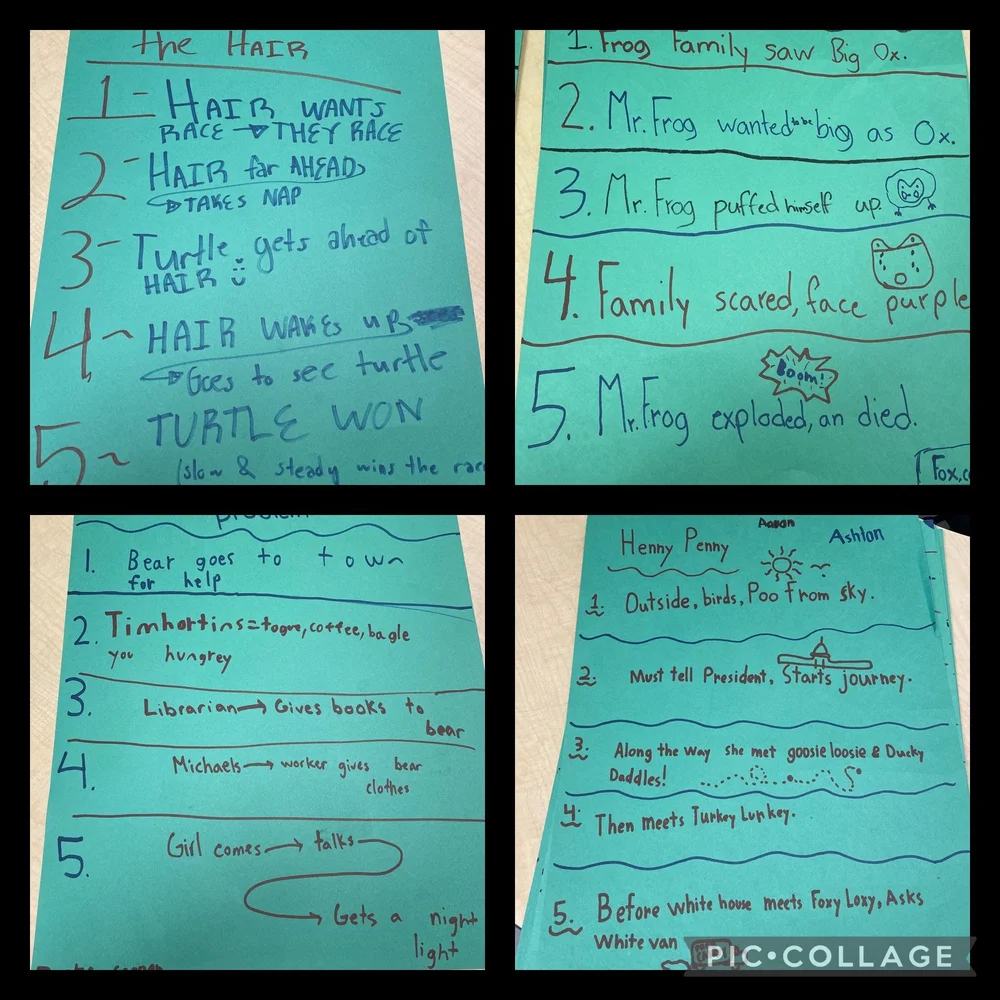 the HAIR
1- HAIR WANTS
RACE → THEY RACE
2- HAIR far AHEAD
→ TAKES NAP
3- Turtle gets ahead of
HAIR
4- HAIR WAKES UP
→ Goes to see turtle
5- TURTLE WON
(slow & steady wins the race
1. Frog Family saw Big Ox.
2. Mr. Frog wanted to be big as Ox.
3. Mr. Frog puffed himself up.
4. Family scared, face purple
Boom!
5. Mr. Frog exploded, an died.
Fox,
problem
1. Bear goes to town
for help
2. Timhortins = togue, coffee, bagle
you hungrey
3. Librarian → Gives books to
bear
4. Michaels → worker gives bear
clothes
5. Girl comes → talks
→ Gets a night
light
Aaron
Ashton
Henny Penny
1. Outside, birds, Poo From sky.
2. Must tell President, Starts journey.
3. Along the way she met goosie loosie & Ducky
Daddles!
4. Then meets Turkey Lurkey.
5. Before white house meets Foxy Loxy, Asks
White van
PIC•COLLAGE